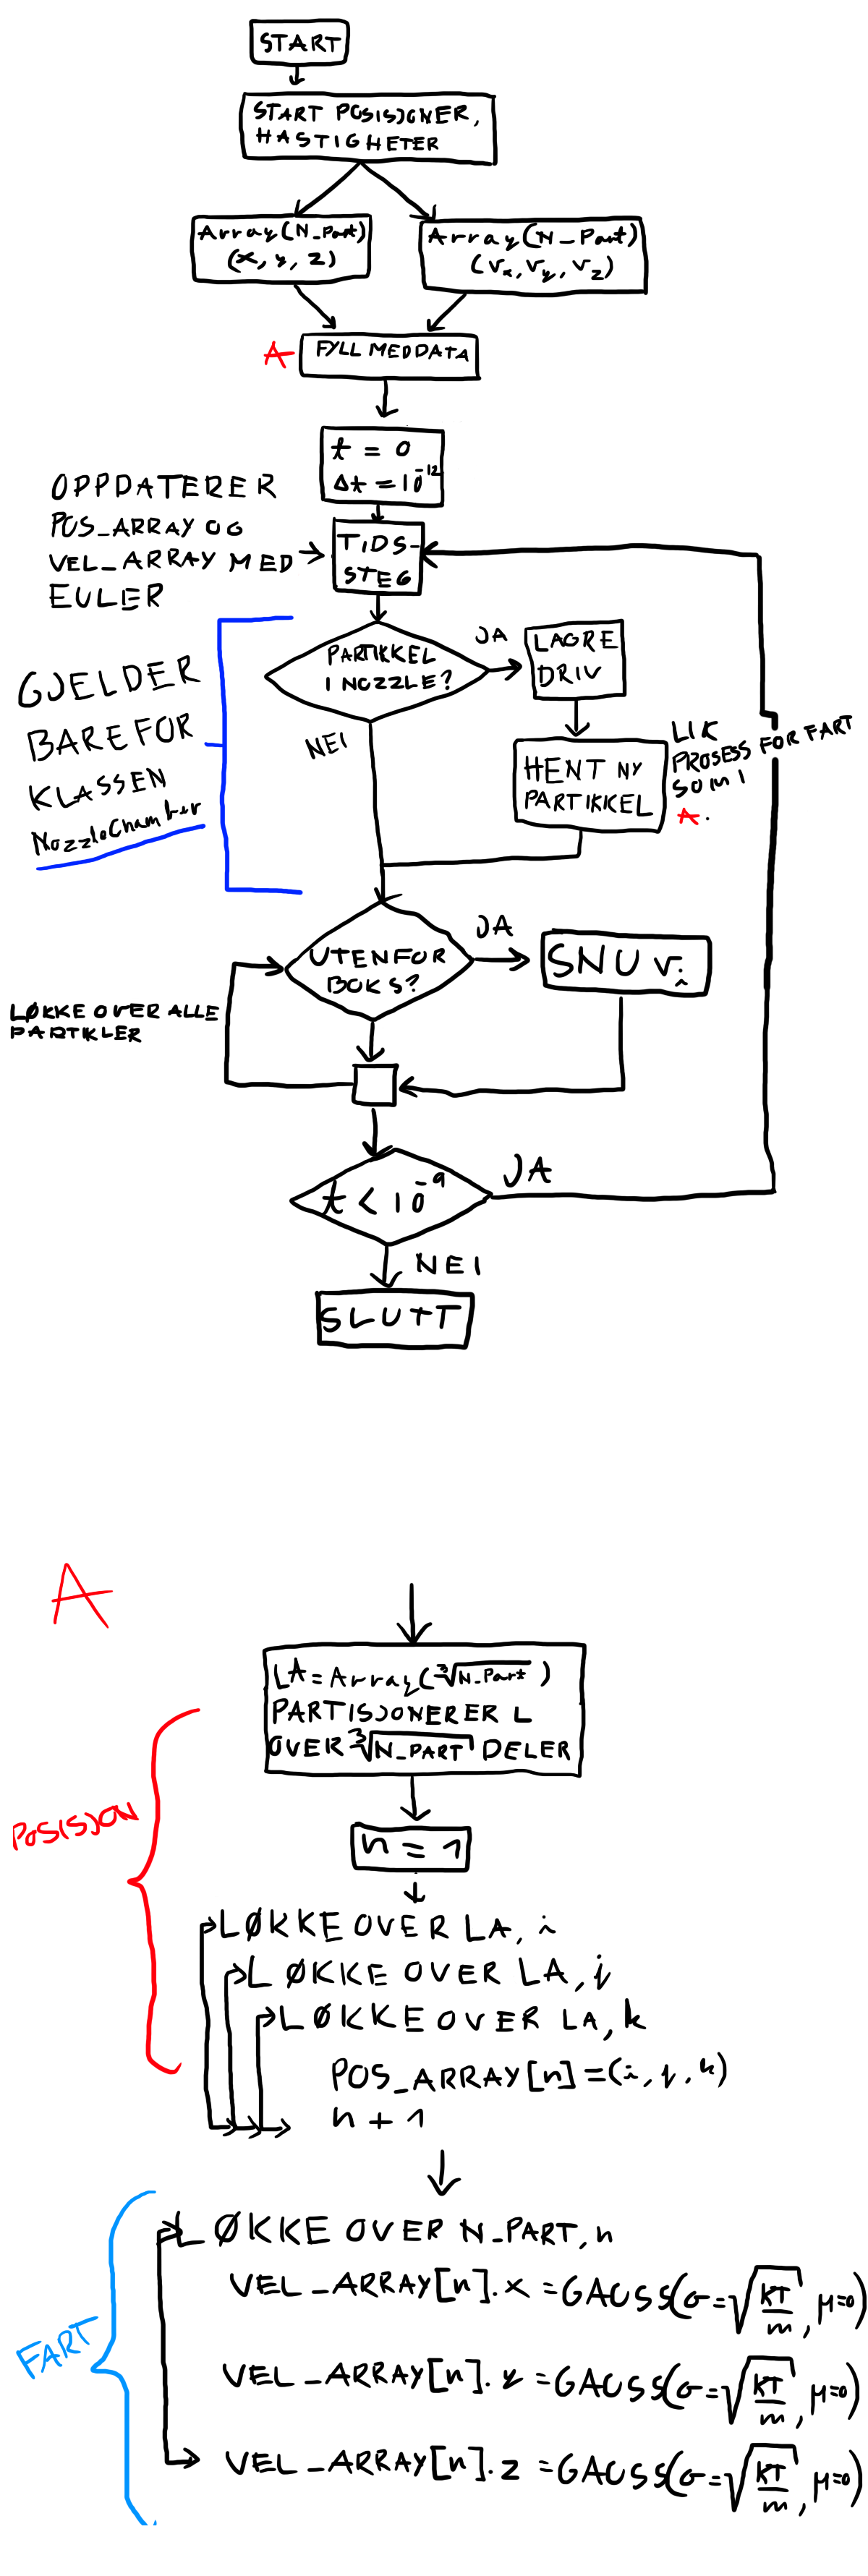 START
START POSISJONER,
HASTIGHETER
Array(N_Part)
(x, y, z)
Array(N_Part)
(vₓ, v_y, v_z)
A
FYLL MED DATA
t = 0
Δt = 10⁻¹²
OPPDATERER
POS_ARRAY OG
VEL_ARRAY MED
EULER
TIDS-
STEG
PARTIKKEL
I NOZZLE?
JA
LAGRE
DRIV
NEI
HENT NY
PARTIKKEL
LIK
PROSESS FOR FART
SOM I
A.
GJELDER
BARE FOR
KLASSEN
NozzleChamber
UTENFOR
BOKS?
JA
SNU vᵢ
LØKKE OVER ALLE
PARTIKLER
t < 10⁻⁹
JA
NEI
SLUTT
A
LA = Array(∛N_Part)
PARTISJONERER L
OVER ∛N_PART DELER
POSISJON
n = 1
LØKKE OVER LA, i
LØKKE OVER LA, j
LØKKE OVER LA, k
POS_ARRAY[n] = (i, j, k)
n + 1
FART
LØKKE OVER N_PART, n
VEL_ARRAY[n].x = GAUSS(σ = √(kT/m), μ=0)
VEL_ARRAY[n].y = GAUSS(σ = √(kT/m), μ=0)
VEL_ARRAY[n].z = GAUSS(σ = √(kT/m), μ=0)